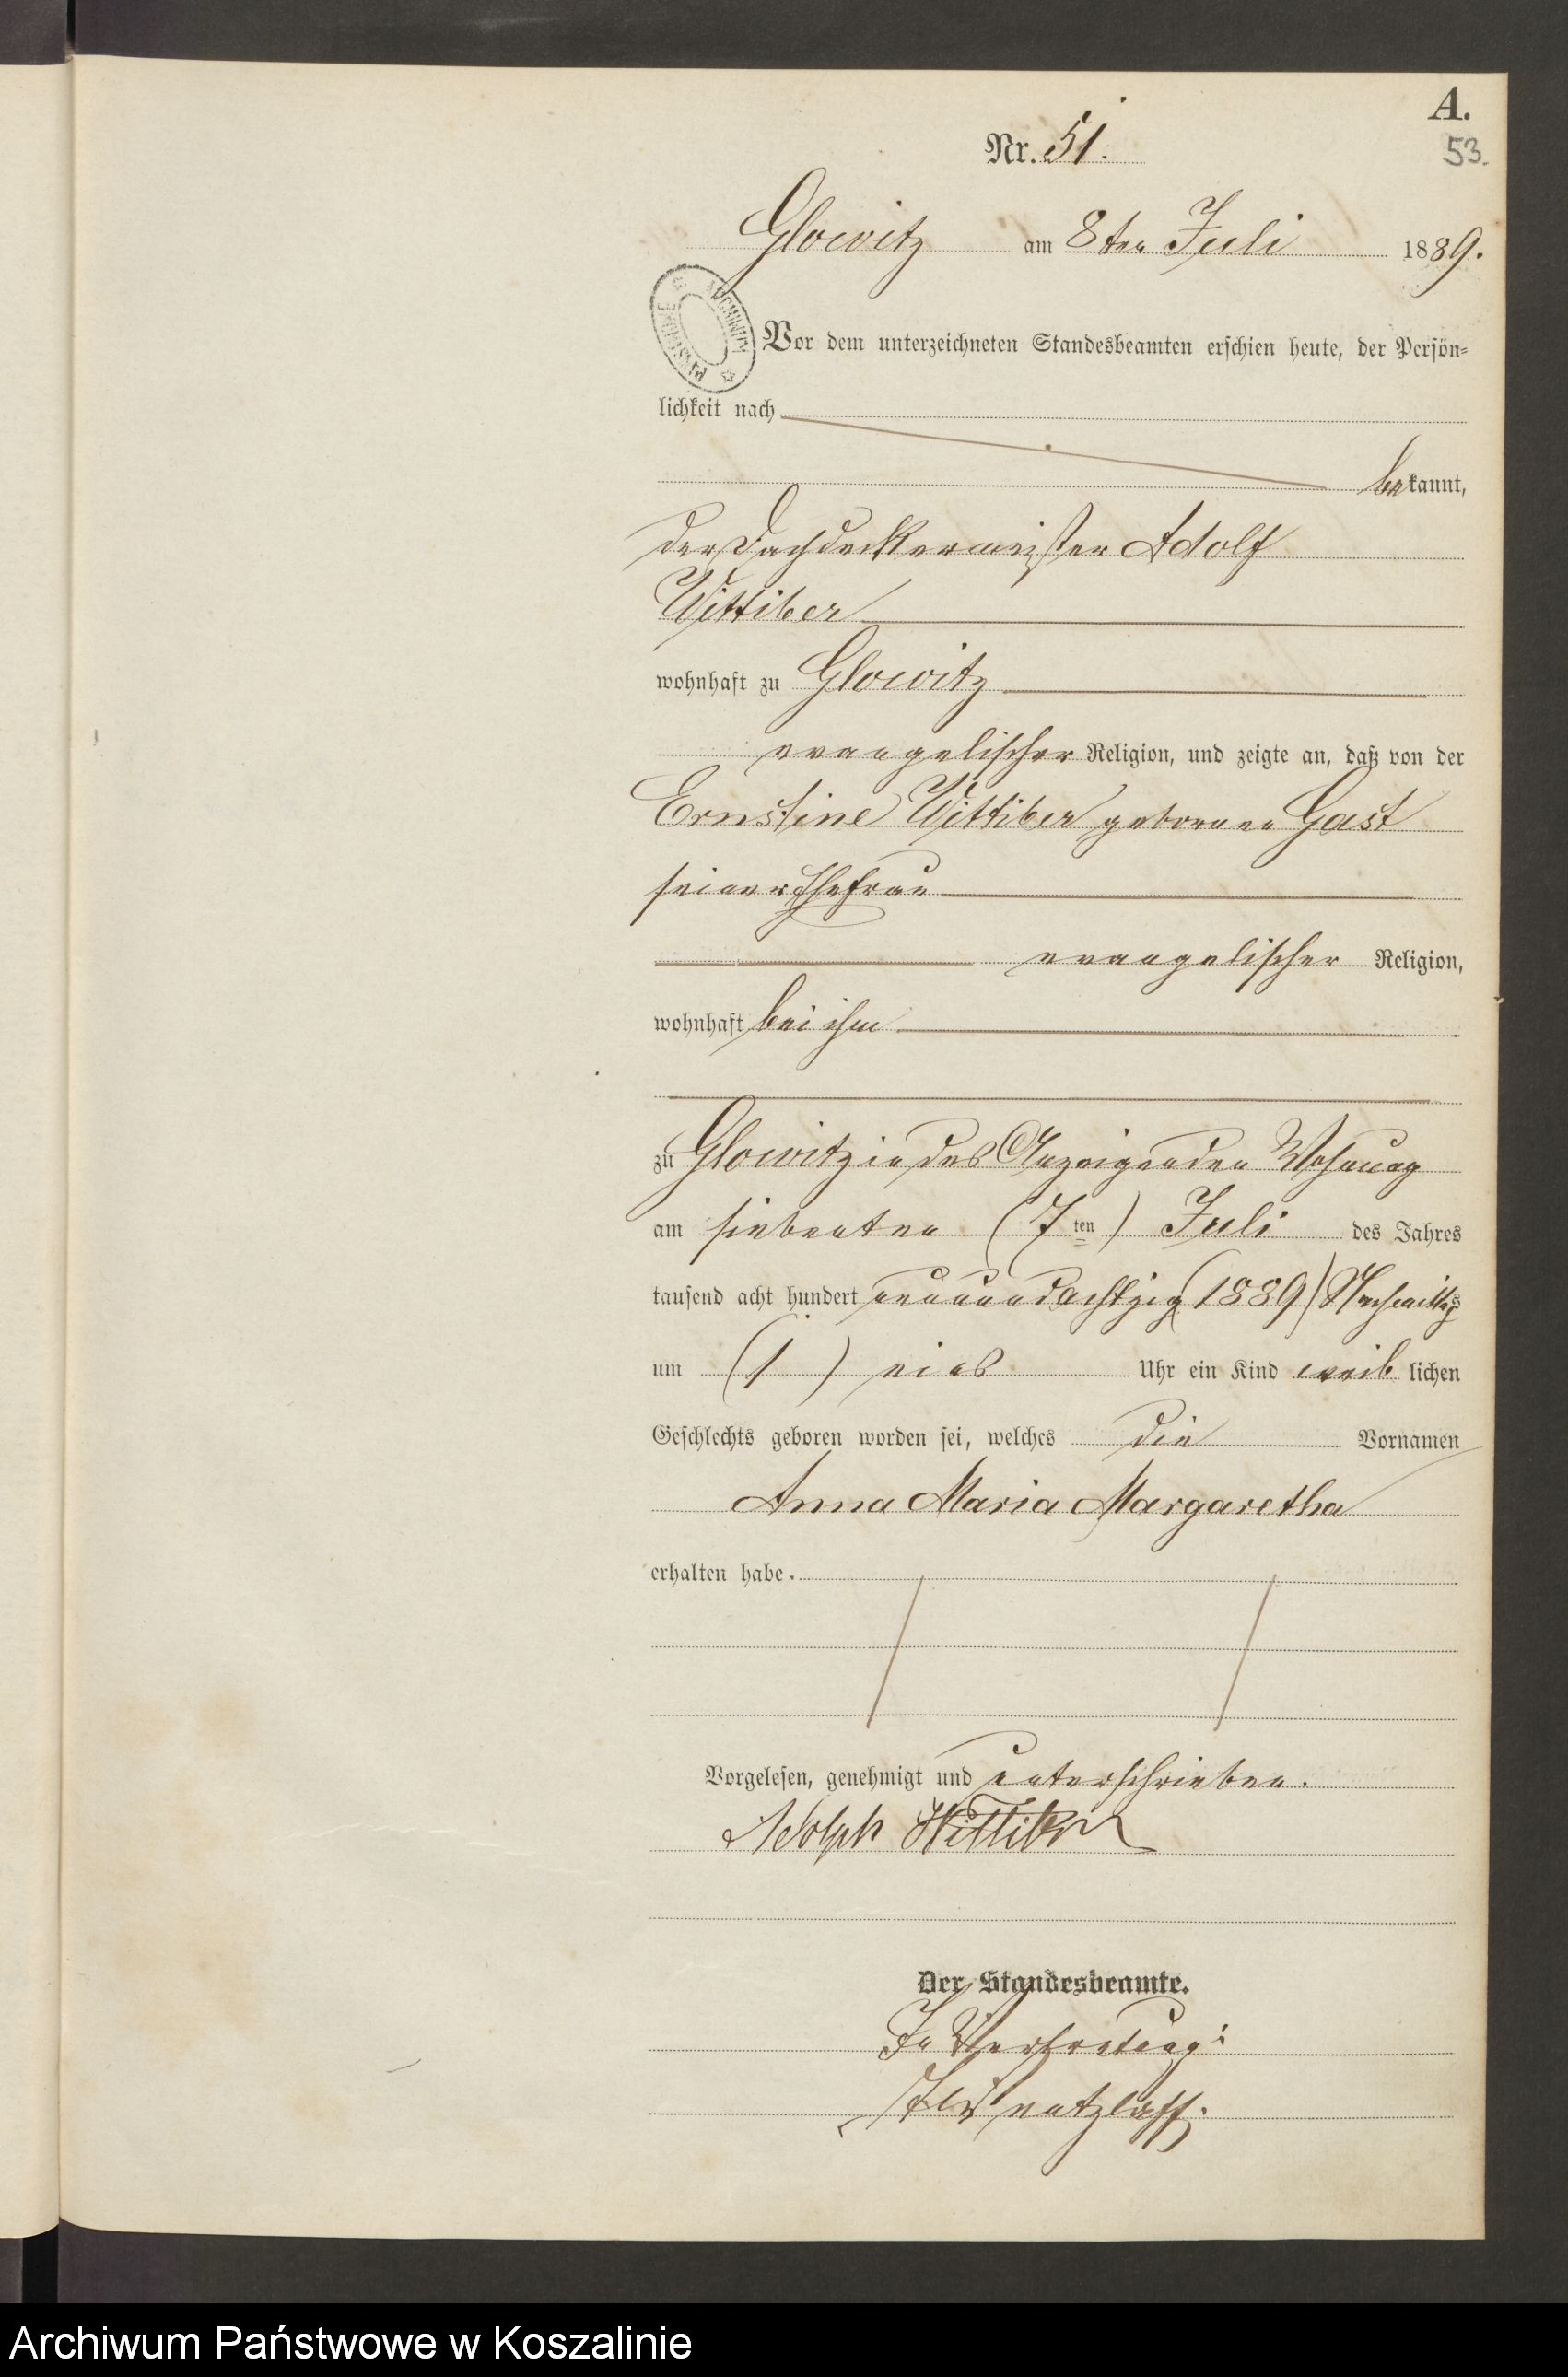 A.
Nr. 51.
53.
Glowitz am 8ten Juli 1889.
Vor dem unterzeichneten Standesbeamten erschien heute, der Persön-
lichkeit nach
bekannt,
der Dachdeckermeister Adolf
Wittiber
wohnhaft zu Glowitz
evangelischer Religion, und zeigte an, daß von der
Ernstine Wittiber geborenen Gast
seiner Ehefrau
evangelischer Religion,
wohnhaft bei ihm
zu Glowitz in des Anzeigenden Wohnung
am siebenten (7ten) Juli des Jahres
tausend acht hundert neunundachtzig (1889) Nachmittags
um (1) eins Uhr ein Kind weiblichen
Geschlechts geboren worden sei, welches die Vornamen
Anna Maria Margaretha
erhalten habe.
Vorgelesen, genehmigt und unterschrieben.
Adolph Wittiber
Der Standesbeamte.
In Vertretung:
Archiwum Państwowe w Koszalinie